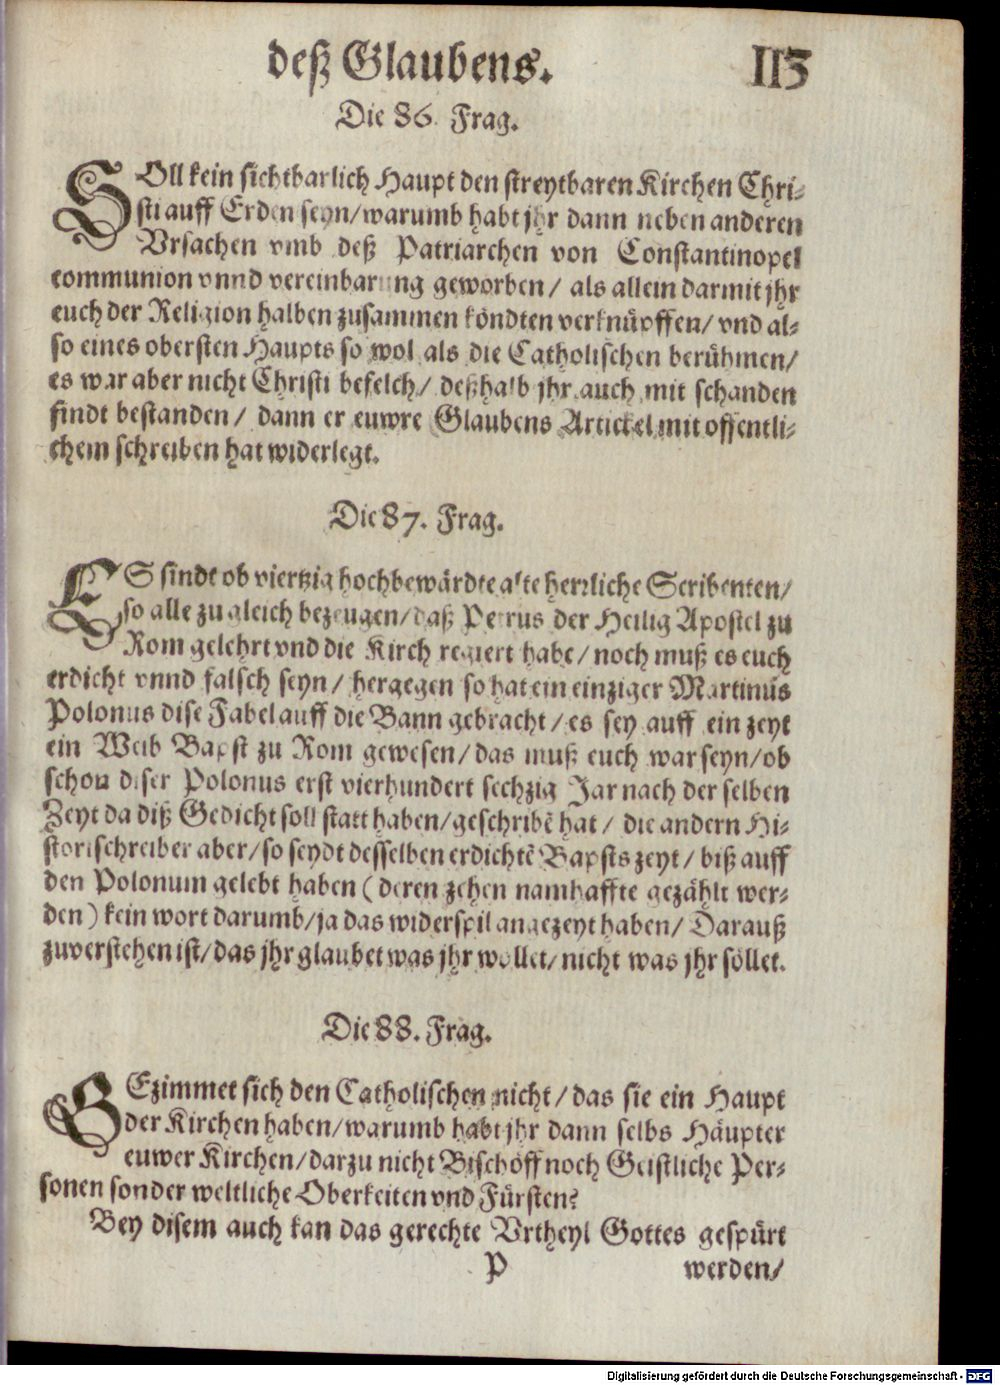 deß Glaubens. 113
Die 86. Frag.
SOll kein sichtbarlich Haupt den streytbaren Kirchen Chri-
sti auff Erden seyn/warumb habt jhr dann neben anderen
Vrsachen vmb deß Patriarchen von Constantinopel
communion vnnd vereinbarung geworben/ als allein darmit jhr
euch der Religion halben zusammen köndten verknüpffen/ vnd al-
so eines obersten Haupts so wol als die Catholischen berühmen/
es war aber nicht Christi befelch/ deßhalb jhr auch mit schanden
sindt bestanden/ dann er euwre Glaubens Artickel mit offentli-
chem schreiben hat widerlegt.
Die 87. Frag.
ES sindt ob viertzig hochbewärdte alte herrliche Scribenten/
so alle zu gleich bezeugen/daß Petrus der Heilig Apostel zu
Rom gelehrt vnd die Kirch regiert habe/noch muß es euch
erdicht vnnd falsch seyn/ hergegen so hat ein einziger Martinus
Polonus dise Fabel auff die Bann gebracht/es sey auff ein zeyt
ein Weib Bapst zu Rom gewesen/das muß euch war seyn/ob
schon diser Polonus erst vierhundert sechzig Jar nach der selben
Zeyt da diß Gedicht soll statt haben/geschribē hat/ die andern Hi-
storischreiber aber/so seydt desselben erdichtē Bapsts zeyt/ biß auff
den Polonum gelebt haben (deren zehen namhaffte gezählt wer-
den) kein wort darumb/ja das widerspil angezeyt haben/ Darauß
zuverstehen ist/das jhr glaubet was jhr wollet/nicht was jhr söllet.
Die 88. Frag.
GEzimmet sich den Catholischen nicht/das sie ein Haupt
der Kirchen haben/warumb habt jhr dann selbs Häupter
euwer Kirchen/darzu nicht Bischöff noch Geistliche Per-
sonen sonder weltliche Oberkeiten vnd Fürsten?
Bey disem auch kan das gerechte Vrtheyl Gottes gespürt
P werden/
Digitalisierung gefördert durch die Deutsche Forschungsgemeinschaft - DFG